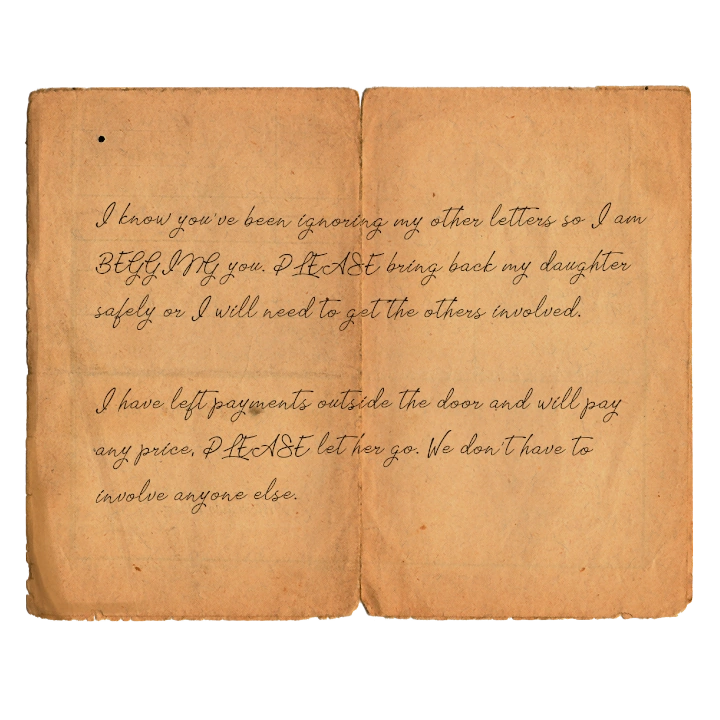 I know you've been ignoring my other letters so I am
BEGGING you. PLEASE bring back my daughter
safely or I will need to get the others involved.
I have left payments outside the door and will pay
any price, PLEASE let her go. We don't have to
involve anyone else.